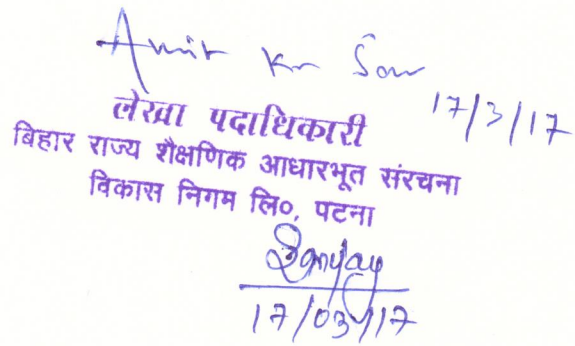 Amit Kr Saw
17/3/17
लेखा पदाधिकारी
बिहार राज्य शैक्षणिक आधारभूत संरचना
विकास निगम लि०, पटना
Sanjay
17/03/17